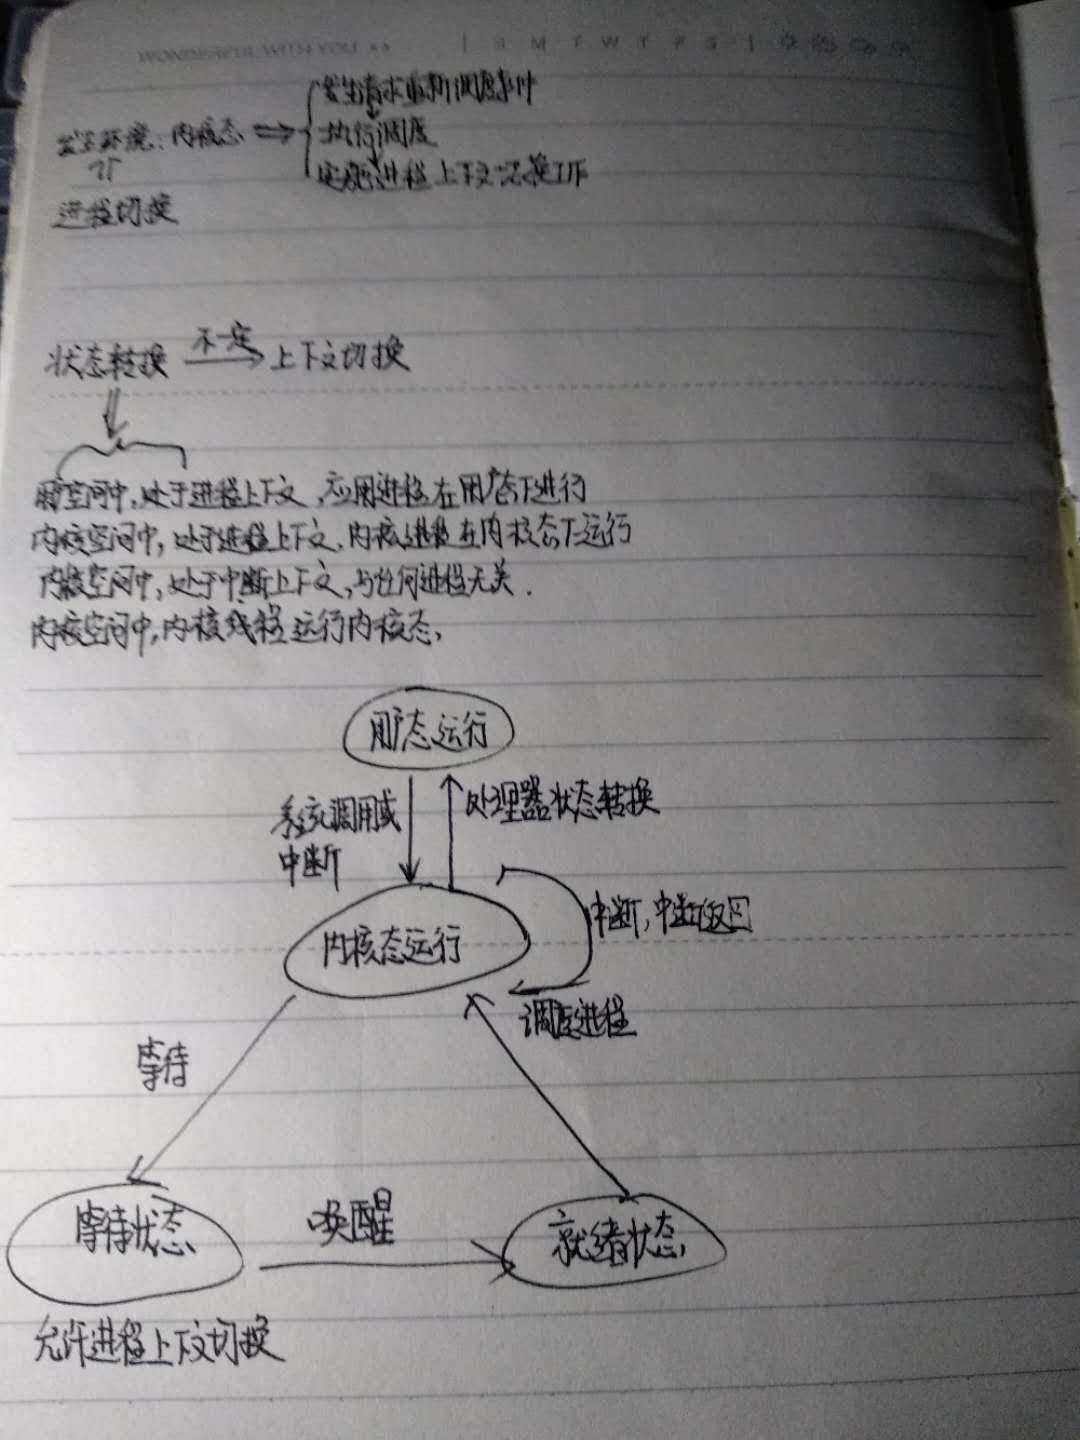 WONDERFUL WITH YOU
S M T W T F S
发生请求重新调度事件
发生环境：内核态 ⇒ 执行调度
实施进程上下文切换工作
进程切换
状态转换 不一定 上下文切换
用户空间中,处于进程上下文,应用进程在用户态下进行
内核空间中,处于进程上下文,内核进程在内核态下运行
内核空间中,处于中断上下文,与任何进程无关.
内核空间中,内核线程运行内核态,
用户态运行
系统调用或
中断
处理器状态转换
内核态运行
中断,中断返回
调度进程
等待
等待状态
唤醒
就绪状态
允许进程上下文切换